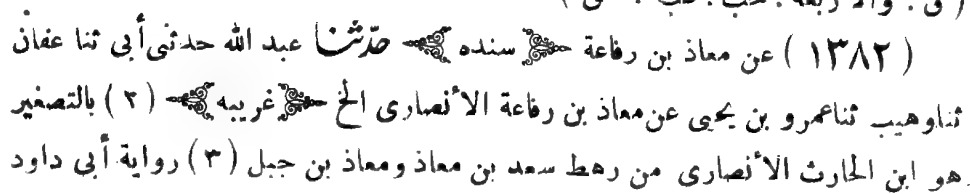 ( ١٣٨٢ ) عن معاذ بن رفاعة ﴿ سنده ﴾ حدّثنا عبد الله حدثنى أبى ثنا عفان
ثنا وهيب ثنا عمرو بن يحيى عن معاذ بن رفاعة الأنصارى الخ ﴿ غريبه ﴾ ( ٢ ) بالتصغير
هو ابن الحارث الأنصارى من رهط سعد بن معاذ ومعاذ بن جبل ( ٣ ) رواية أبى داود